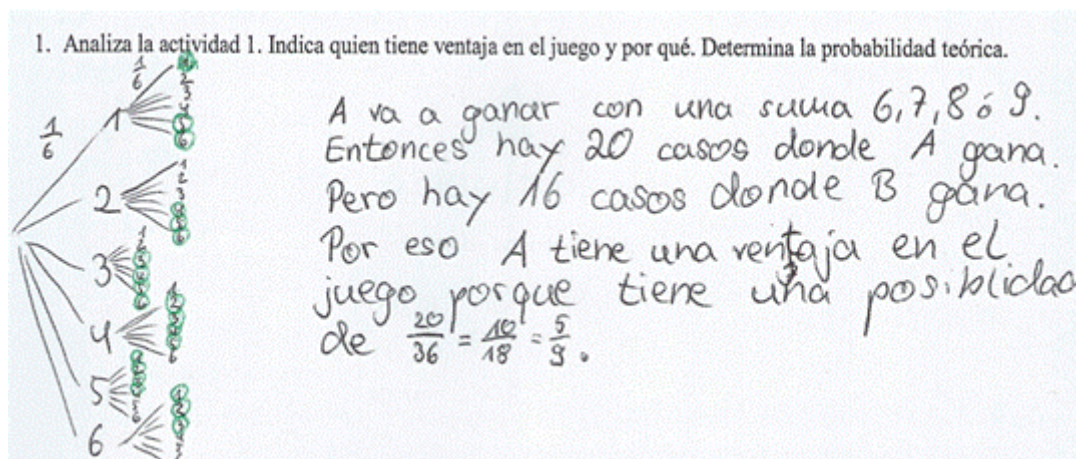 1. Analiza la actividad 1. Indica quien tiene ventaja en el juego y por qué. Determina la probabilidad teórica.
1/6
1/6
1
2
3
4
5
6
A va a ganar con una suma 6,7,8 ó 9.
Entonces hay 20 casos donde A gana.
Pero hay 16 casos donde B gana.
Por eso A tiene una ventaja en el
juego porque tiene una posiblidad
de 20/36 = 10/18 = 5/9.